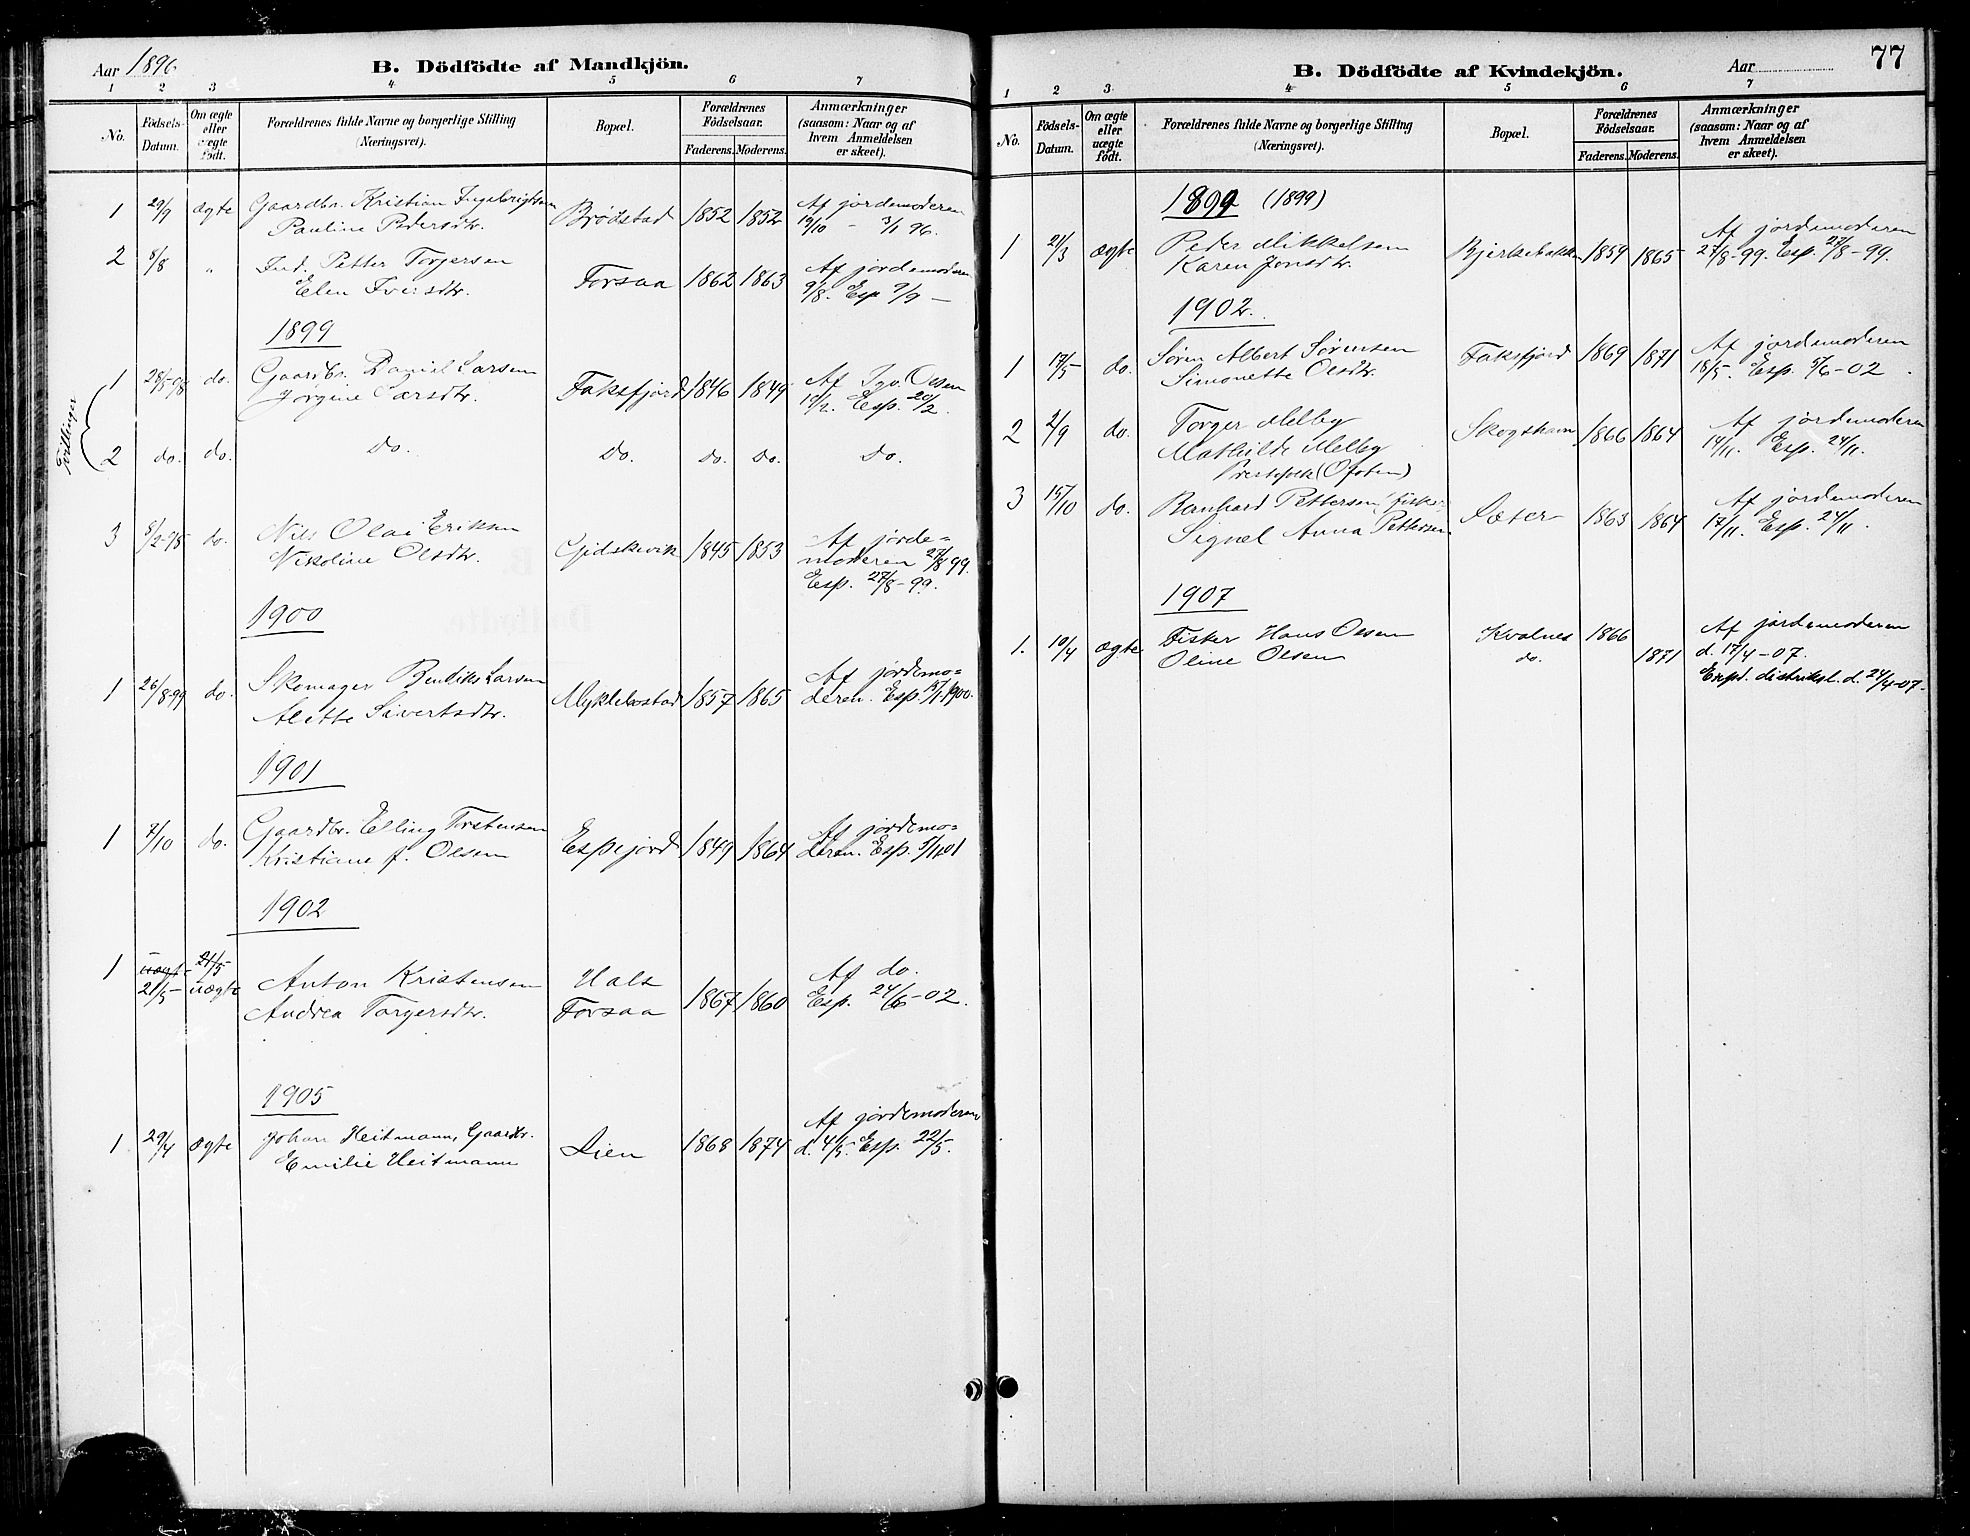 Aar 1896
B. Dödfödte af Mandkjön.
1 2 3 4 5 6 7
No. Födsels-Datum. Om ægte eller uægte födt. Forældrenes fulde Navne og borgerlige Stilling (Næringsvei). Bopæl. Forældrenes Födselsaar. Faderens. Moderens. Anmærkninger (saasom: Naar og af hvem Anmeldelsen er skeet).
1 29/9 ægte Gaardbr. Kristian Ingebrigtsen Brødstad 1852 1852 Af jordemoderen
Pauline Pedersdtr. 19/10 - 3/1 96.
2 8/8 " Ind. Petter Torgersen Forsaa 1862 1863 Af jordemoderen
Elen Iversdtr. 9/8. Esp 9/9 -
1899
Tvillinger
1 28/5-98 do. Gaardbr. Daniel Larsen Faksfjord 1846 1849 Af Igv. Olsen
Jørgine Larsdtr. Esp. 20/2.
2 do. do. do. do. do. do. do.
3 do. Nils Olai Eriksen Gjidskevik 1845 1853 Af jorde-
Nikoline Olsdtr. moderen 27/8 99.
Esp. 27/8-99.
1900
1 26/8-99 do. Skomager Bendiks Larsen Myklebostad 1857 1865 Af jordemo-
Alette Sivertsdtr. deren. Esp. 1900.
1901
1 7/10 do. Gaardbr. Elling Torstensen Espejord 1849 1864 Af jordemo-
Kristiane f. Olsen deren. Esp.
1902
uægte 21/5
1 21/5- uægte Anton Kristensen Hals 1867 1860 Af do.
Andrea Torgersdtr. Forsaa Esp. 24/6-02.
1905
1. 29/4 ægte Johan Heitmann, Gaardbr. Lien 1868 1874 Af jordemoderen
Emilie Heitmann d. 4/5. Esp. 22/5.
77
B. Dödfödte af Kvindekjön. Aar
1 2 3 4 5 6 7
No. Födsels-Datum. Om ægte eller uægte födt. Forældrenes fulde Navne og borgerlige Stilling (Næringsvei). Bopæl. Forældrenes Födselsaar. Faderens. Moderens. Anmærkninger (saasom: Naar og af hvem Anmeldelsen er skeet).
1899 (1899)
1 21/3 ægte Peder Mikkelsen Bjerkebakken 1859 1865 Af jordemoderen
Karen Jonsdtr. 27/8-99. Esp. 27/8-99.
1902.
1 17/5 do. Søren Albert Sørensen Faksfjord 1869 1871 Af jordemoderen
Simonette Olsdtr. 18/5. Esp. 5/6-02.
2 2/9 do. Torger Melby Skogshavn 1866 1864 Af jordemoderen
Mathilde Melby 14/11. Esp. 24/11.
(Ofoten)
3 15/10 do. Bernhard Pettersen, fisker Sæter 1863 1864 Af jordemoderen
Signel Anna Pettersen. 17/11. Esp. 24/11.
1907
1. 10/4 ægte Fisker Hans Olsen Kvalnes 1866 Af jordemoderen
Oline Olsen do. 1871 d. 17/4-07.
Exp. distriktsl. d. 24/4-07.